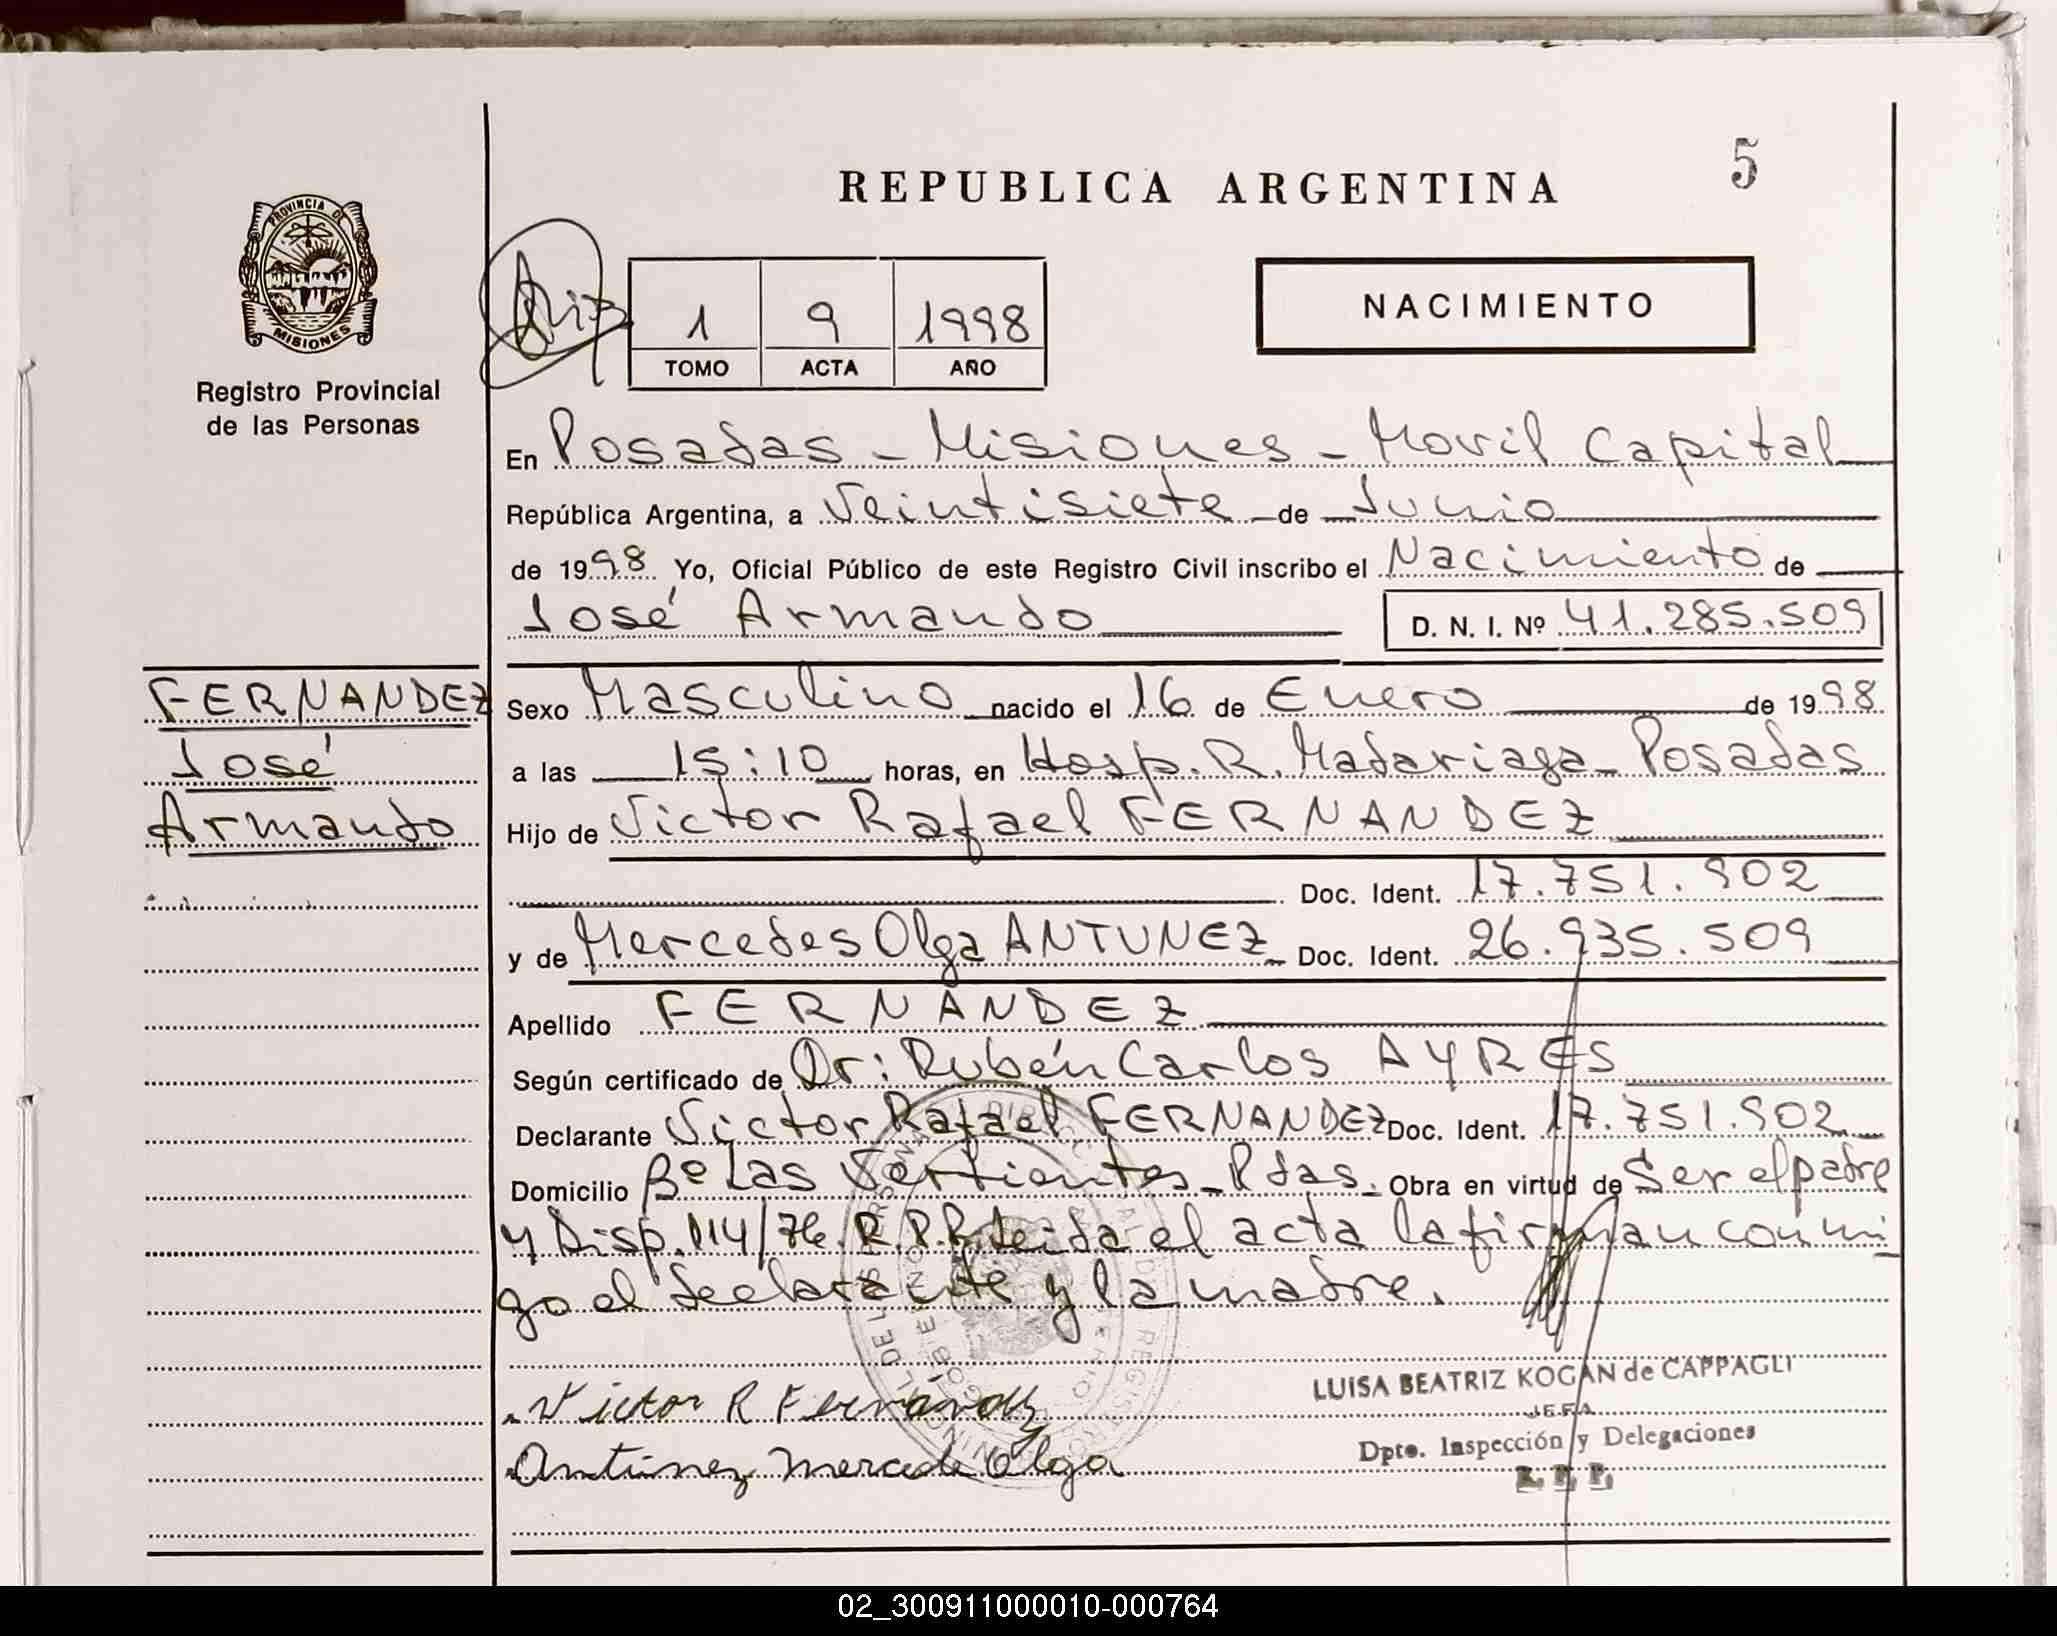 5
REPUBLICA ARGENTINA
PROVINCIA DE
MISIONES
Registro Provincial
de las Personas
1 9 1998
TOMO ACTA AÑO
NACIMIENTO
En Posadas - Misiones - Movil Capital
República Argentina, a Veintisiete de Junio
de 1998 Yo, Oficial Público de este Registro Civil inscribo el Nacimiento de
José Armando D. N. I. Nº 41.285.509
FERNANDEZ
José
Armando
Sexo Masculino nacido el 16 de Enero de 1998
a las 15:10 horas, en Hosp. R. Madariaga - Posadas
Hijo de Victor Rafael FERNANDEZ
Doc. Ident. 17.751.902
y de Mercedes Olga ANTUNEZ Doc. Ident. 26.935.509
Apellido FERNANDEZ
Según certificado de Dr: Rubén Carlos AYRES
Declarante Victor Rafael FERNANDEZ Doc. Ident. 17.751.902
Domicilio Bº Las Vertientes - Pdas. Obra en virtud de Ser el padre
y Disp. 114/76 R.P.P. Leida el acta la firman conmi
go el declarante y la madre.
Victor R Fernández
Antúnez Mercede Olga
LUISA BEATRIZ KOGAN de CAPPAGLI
JEFA
Dpto. Inspección y Delegaciones
R. P. P.
02_300911000010-000764